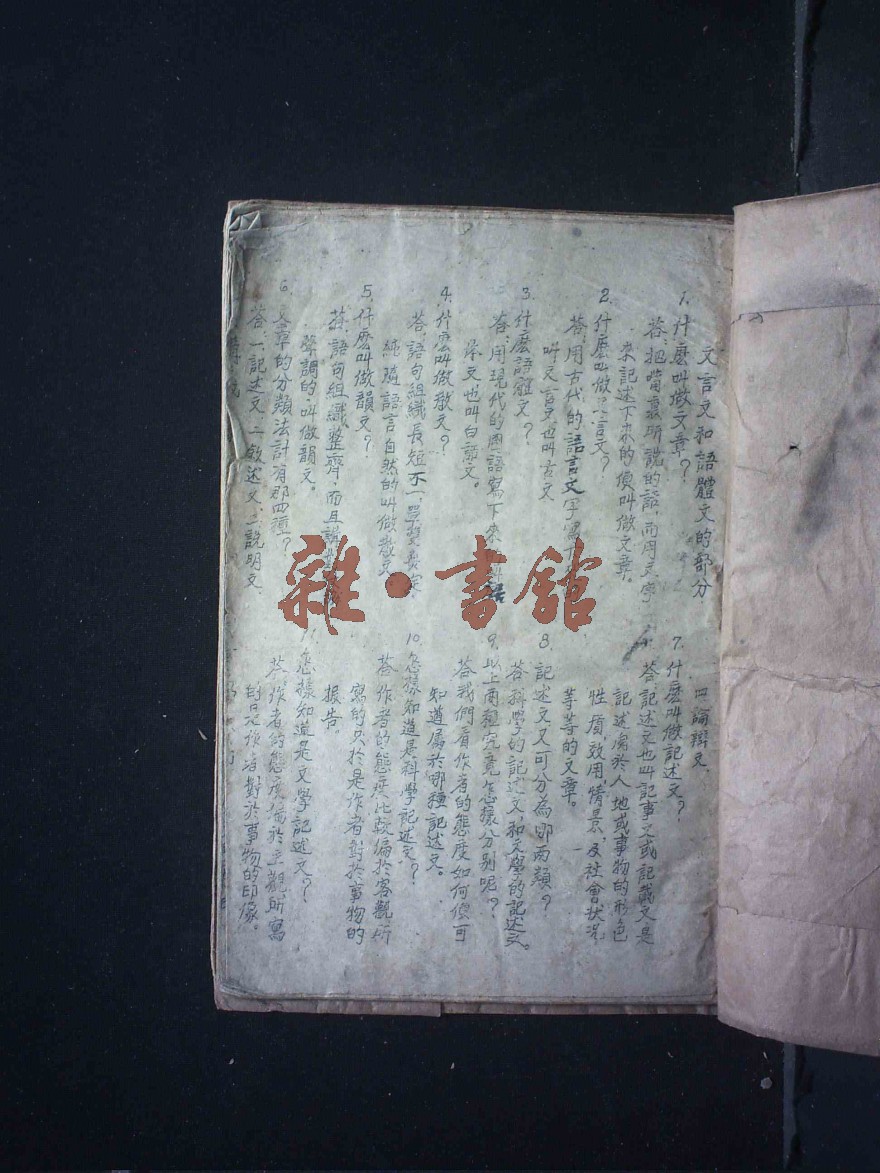 文言文和語體文的部分
1. 什麼叫做文章？
答：把嘴裏所說的話，而用文字
來記述下來的便叫做文章。
2. 什麼叫做文言文？
答：用古代的語言文字寫下
叫文言文也叫古文
3. 什麼語體文？
答：用現代的國語寫下來
体文也叫白話文。
4. 什麼叫做散文？
答：語句組織長短不一，單雙
純隨語言自然的叫做散文
5. 什麼叫做韻文？
答：語句組織整齊，而且
聲調的，叫做韻文。
6. 文章的分類法計有那四種？
答：一記述文、二敘述文、三說明文
四論辯文、
7. 什麼叫做記述文？
答：記述文也叫記事文或記載文是
記述關於人地或事物的形色
性損，效用，情景，及社會狀況，
等等的文章。
8. 記述文又可分為哪兩類？
答：科學的記述文，和文學的記述文。
9. 以上兩種究竟怎樣分別呢？
答：我們看作者的態度如何便可
知道屬於哪種記述文。
10. 怎樣知道是科學記述文？
答：作者的態度比較偏於客觀所
寫的只於是作者對於事物的
报告。
11. 怎樣知道是文學記述文？
答：作者的態度偏於主觀所寫
的是作者對於事物的印像。
雜·書館